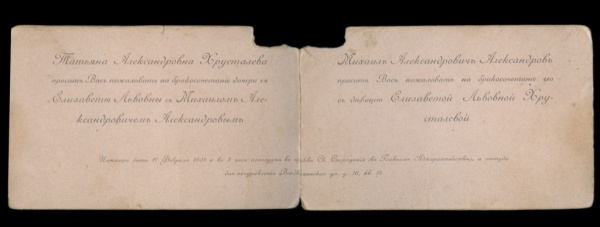 Татьяна Александровна Хрусталева
проситъ Васъ пожаловать на бракосочетаніе дочери ея
Елизаветы Львовны съ Михаиломъ Але-
ксандровичемъ Александровымъ
Михаилъ Александровичъ Александровъ
проситъ Васъ пожаловать на бракосочетаніе его
съ дѣвицей Елизаветой Львовной Хру-
сталевой
Имѣющее быть Февраля въ часа пополудни въ церкви Св. Спиридонія (въ Главномъ Адмиралтействѣ), а оттуда
для поздравленія ул. д.